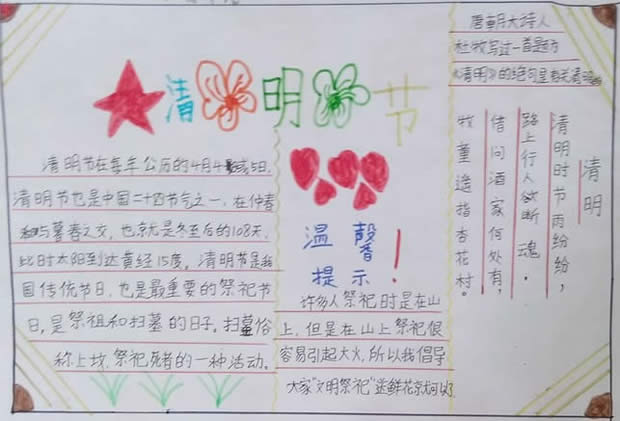 清明节
清明节在每年公历的4月4或5日.
清明节也是中国二十四节气之一,在仲春
与暮春之交,也就是冬至后的108天.
此时太阳到达黄经15度,清明节是我
国传统节日,也是最重要的祭祀节
日,是祭祖和扫墓的日子,扫墓俗
称上坟,祭祀死者的一种活动.
温馨
提示!
许多人祭祀时是在山
上,但是在山上祭祀很
容易引起大火,所以我倡导
大家"文明祭祀"送鲜花就可以了
唐朝大诗人
杜牧写过一首题为
《清明》的绝句是有关清明的
清明
清明时节雨纷纷,
路上行人欲断魂.
借问酒家何处有,
牧童遥指杏花村.